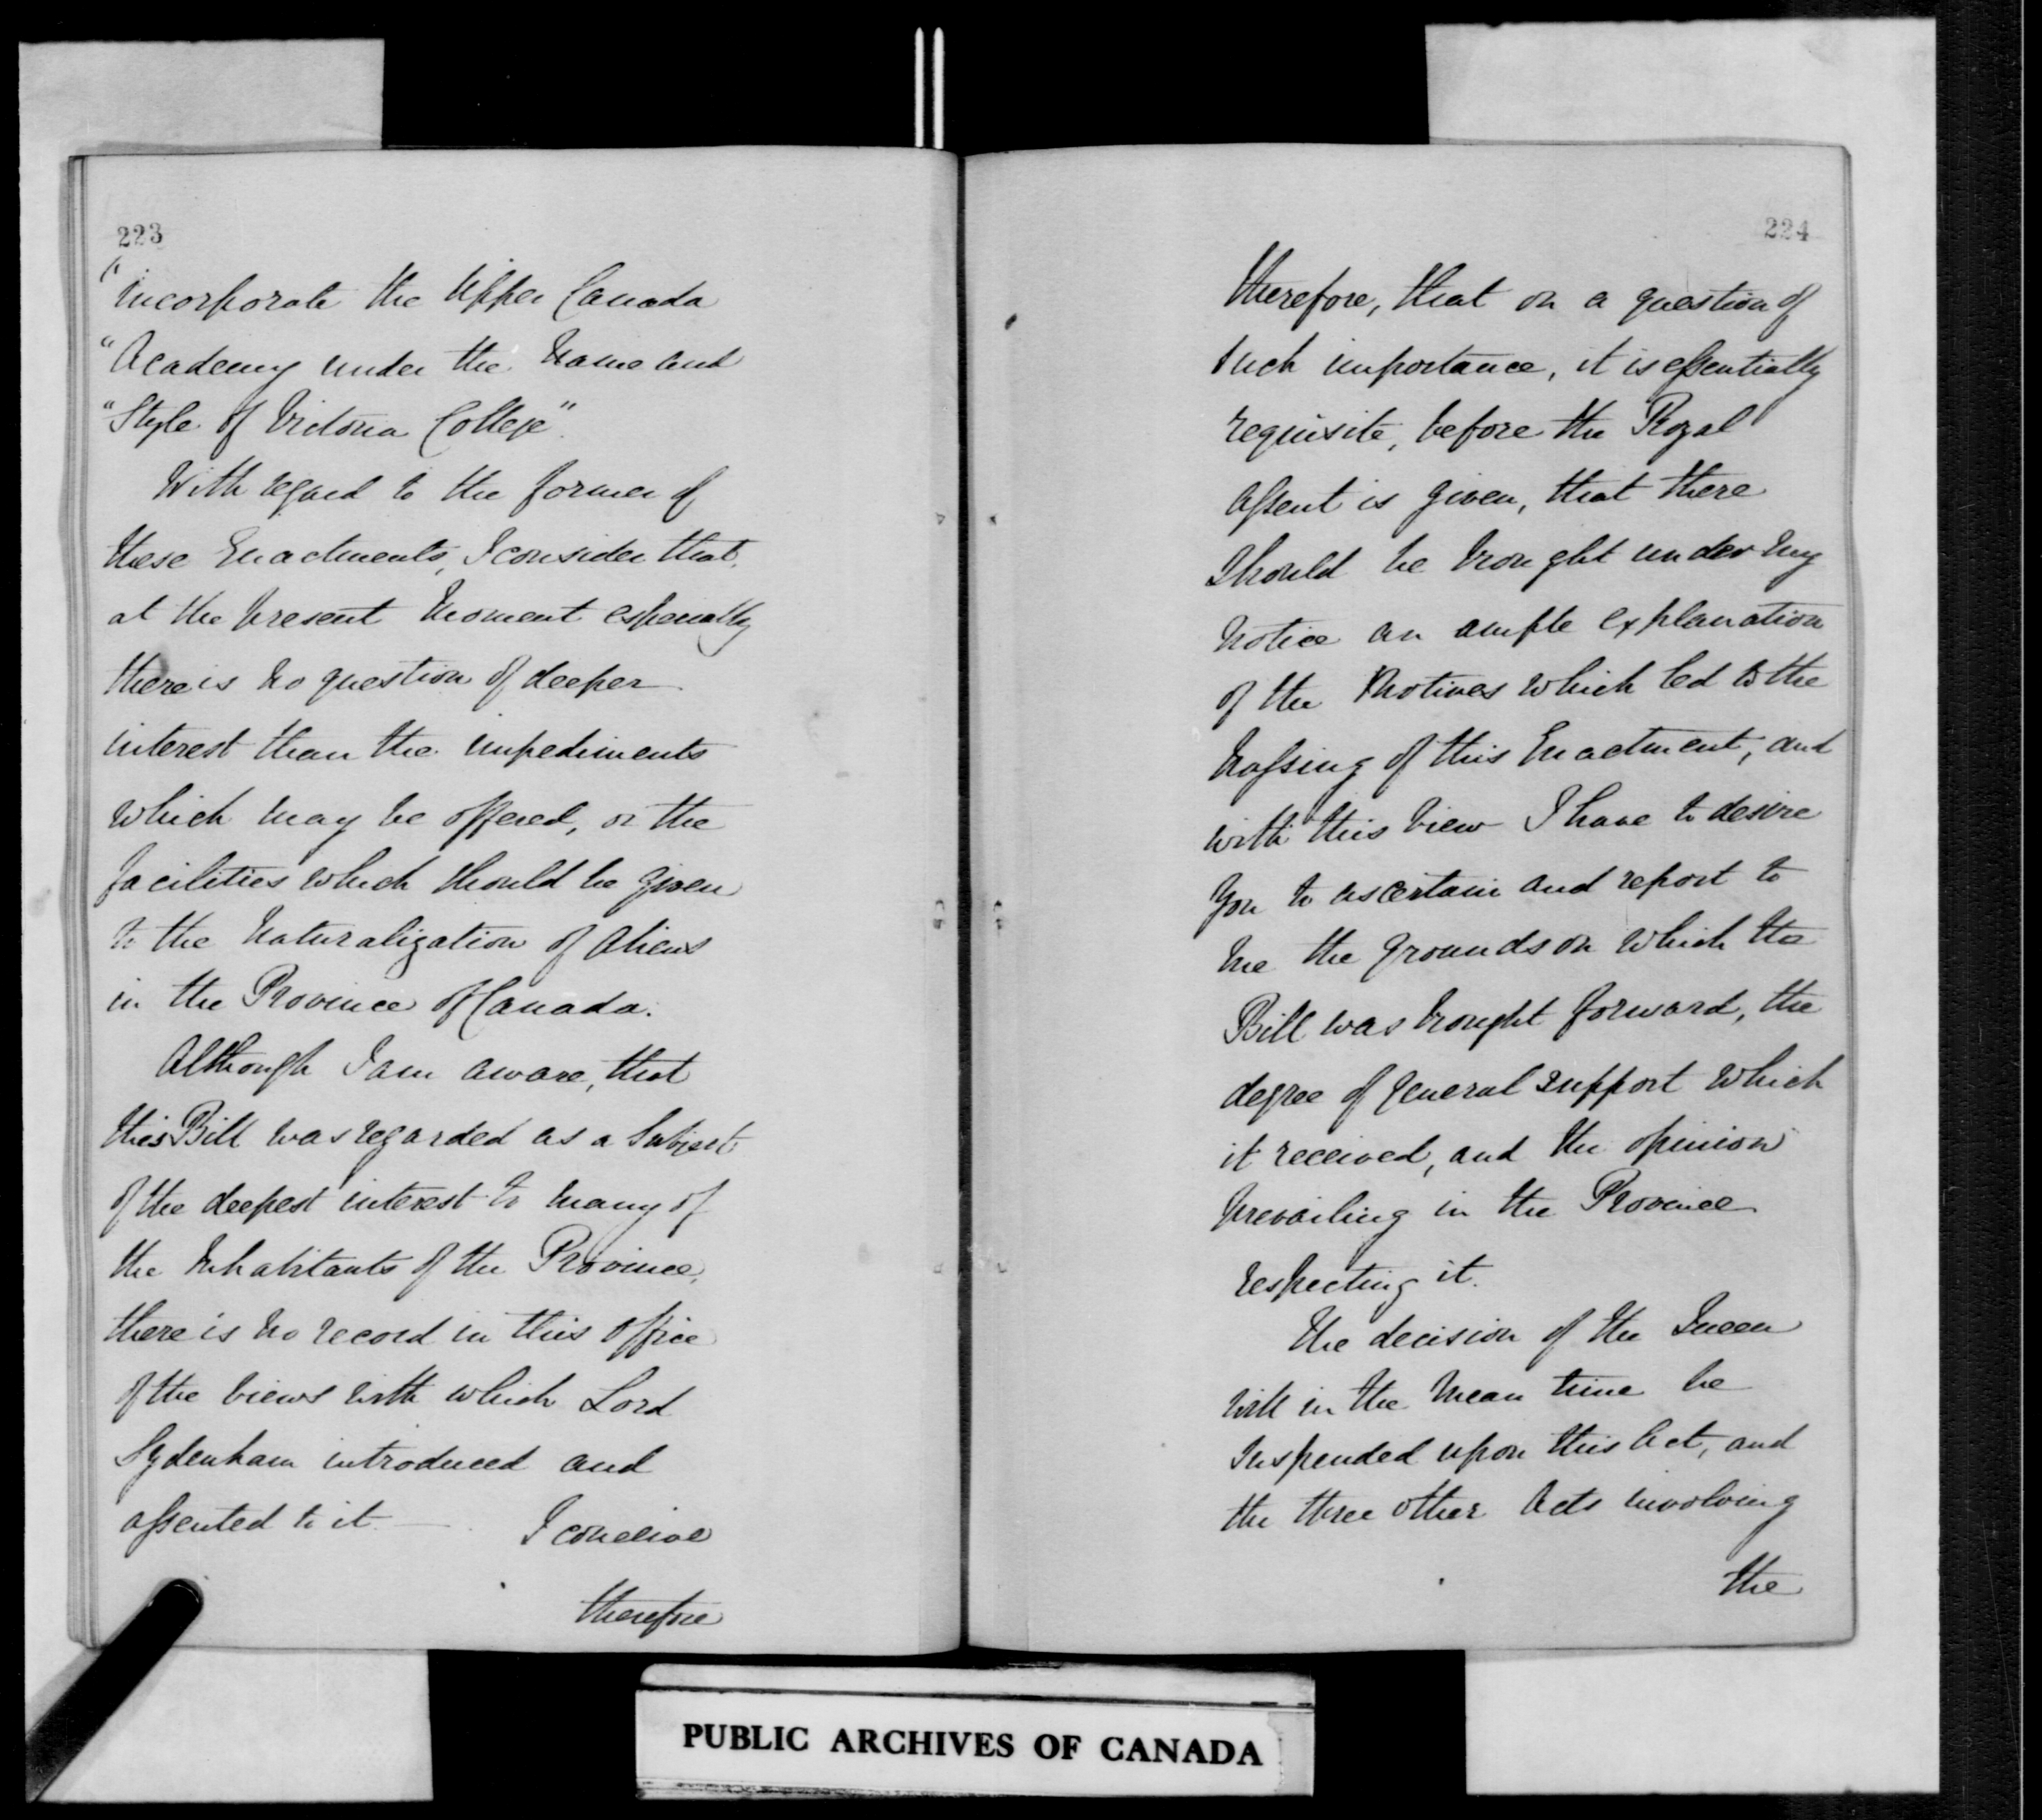 223
"incorporate the Upper Canada
"Academy under the Name and
"Style of Victoria College".
With regard to the former of
these Enactments, I consider that,
at the present Moment especially
there is no question of deeper
interest than the impediments
which may be offered, or the
facilities which should be given
to the Naturalization of Aliens
in the Province of Canada.
Although I am aware, that
this Bill was regarded as a Subject
of the deepest interest to many of
the Inhabitants of the Province,
there is no record in this Office
of the views with which Lord
Sydenham introduced and
assented to it — I conceive
therefore
224
therefore, that on a question of
such importance, it is essentially
requisite, before the Royal
Assent is given, that there
should be brought under my
notice an ample explanation
of the Motives which led to the
passing of this Enactment, and
with this view I have to desire
you to ascertain and report to
me the grounds on which the
Bill was brought forward, the
degree of general support which
it received, and the opinion
prevailing in the Province
respecting it.
The decision of the Queen
will in the mean time be
suspended upon this Act, and
the three other Acts involving
the
PUBLIC ARCHIVES OF CANADA